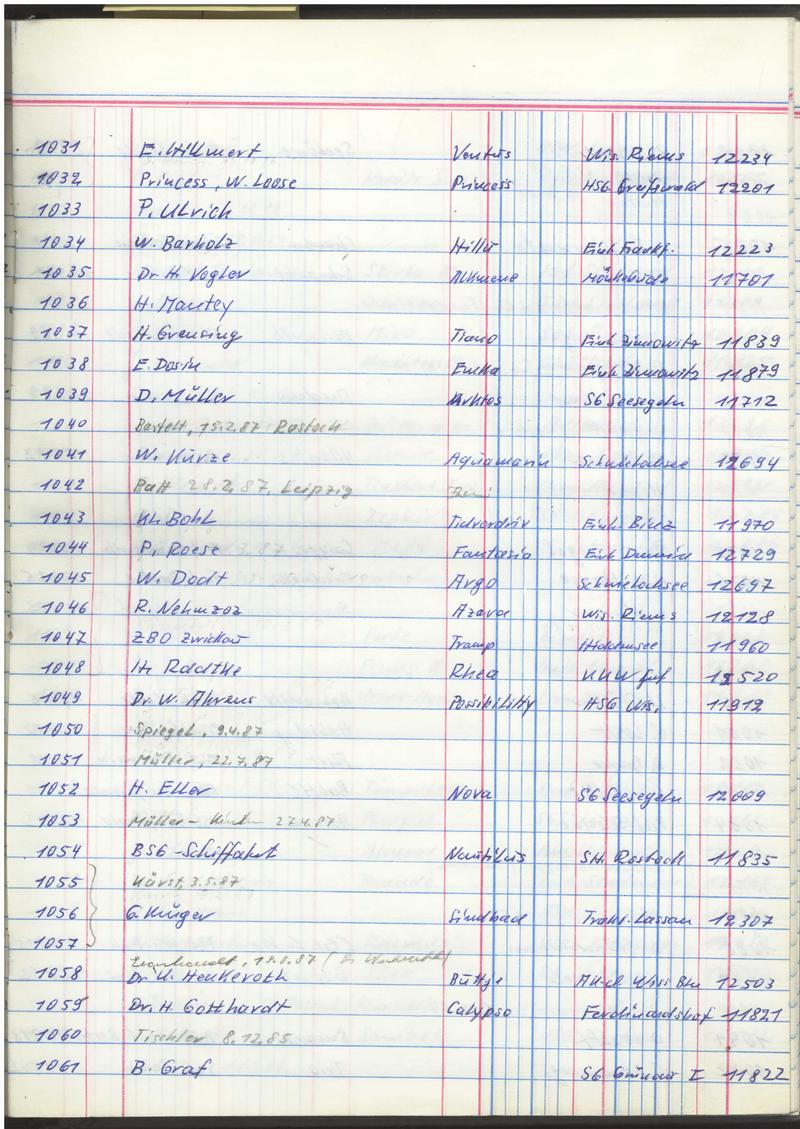 1031 E. Hillmert Ventus Wis. Riems 12234
1032 Princess, W. Loose Princess HSG Greifswald 12201
1033 P. Ulrich
1034 W. Barholz Einh. Frankf. 12223
1035 Dr. H. Vogler Alkmene 11701
1036 H. Mantey
1037 H. Greusing Tiano Einh. Zinnowitz 11839
1038 E. Dosin Emka Einh. Zinnowitz 11879
1039 D. Müller Arktos SG Seesegeln 11712
1040 Bartelt, 15.2.87 Rostock
1041 W. Kurze Aquamarin Schwielochsee 12694
1042 Patt 28.2.87, Leipzig
1043 Kl. Bohl Tidvardriv Einh. Binz 11970
1044 P. Roese Fantasia Einh. 12729
1045 W. Dodt Argo Schwielochsee 12697
1046 R. Nehmzoz Azava Wis. Riems 12128
1047 ZBO Zwickau Tramp Hiddensee 11960
1048 H. Radtke Rhea 12520
1049 Dr. W. Ahrens Possibility HSG Wis. 11912
1050 Spiegel, 9.4.87
1051 Müller, 22.7.87
1052 H. Eller Nova SG Seesegeln 12009
1053 Müller - 27.4.87
1054 BSG-Schiffahrt Nautilus SH. Rostock 11835
1055 Kärst, 3.5.87
1056 G. Krüger Sindbad Trakt. Lassan 12307
1057
1058 Dr. K. Henkeroth Büttje Ak. d. Wiss. Bln 12503
1059 Dr. H. Gotthardt Calypso Ferdinandshof 11821
1060 Tischler 8.12.85
1061 B. Graf SG Grünau I 11822